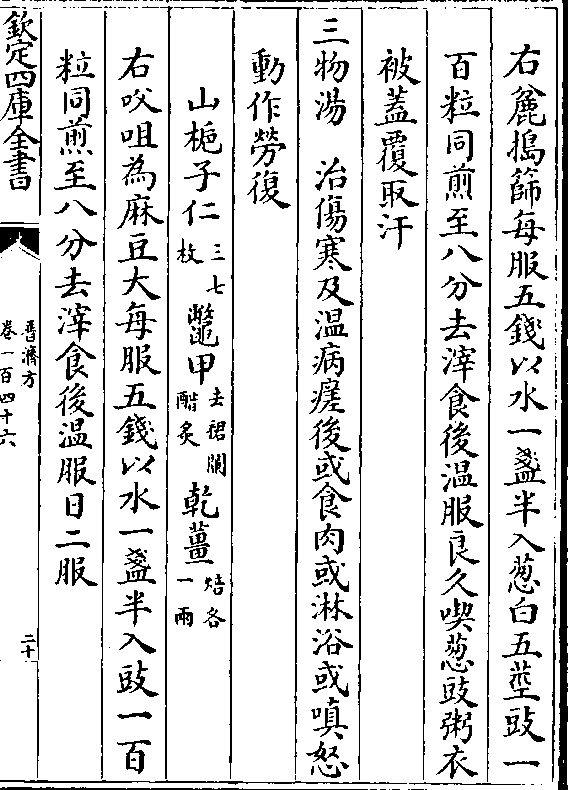 右麄搗篩每服五錢以水一盞半入葱白五莖豉一
百粒同煎至八分去滓食後溫服良久喫葱豉粥衣
被蓋覆取汗
三物湯　治傷寒及溫病瘥後或食肉或淋浴或嗔怒
動作勞復
山梔子仁三七枚　鼈甲去裙襴醋炙　乾薑焙各一兩
右㕮咀為麻豆大每服五錢以水一盞半入豉一百
粒同煎至八分去滓食後溫服日二服
欽定四庫全書
普濟方
卷一百四十六
二十